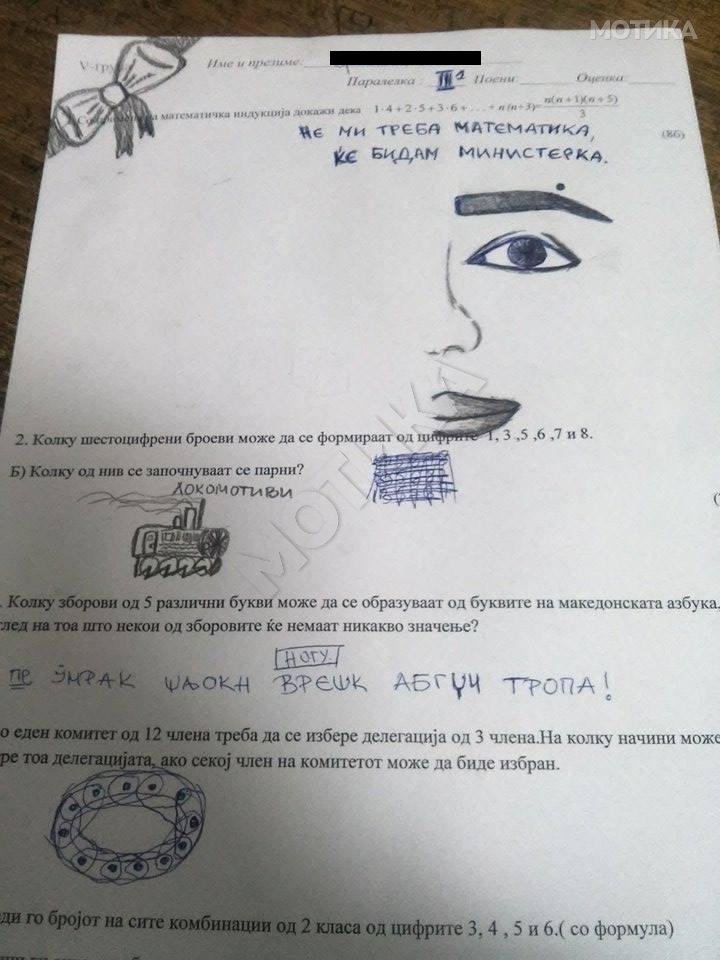 МОТИКА
V-гру
Име и презиме:
Паралелка : III¹ Поени: Оценка:
математичка индукција докажи дека 1·4+2·5+3·6+...+n(n+3)=n(n+1)(n+5)/3
(8б)
НЕ МИ ТРЕБА МАТЕМАТИКА,
ЌЕ БИДАМ МИНИСТЕРКА.
2. Колку шестоцифрени броеви може да се формираат од цифрите 1, 3 ,5 ,6 ,7 и 8.
Б) Колку од нив се започнуваат се парни?
ЛОКОМОТИВИ
МОТИКА
. Колку зборови од 5 различни букви може да се образуваат од буквите на македонската азбука,
глед на тоа што некои од зборовите ќе немаат никакво значење?
НОГУ
ПР ЅМРАК ЏЉОКН ВРЕШК АБГЏЧ ТРОПА!
о еден комитет од 12 члена треба да се избере делегација од 3 члена.На колку начини може
ре тоа делегацијата, ако секој член на комитетот може да биде избран.
ди го бројот на сите комбинации од 2 класа од цифрите 3, 4 , 5 и 6.( со формула)